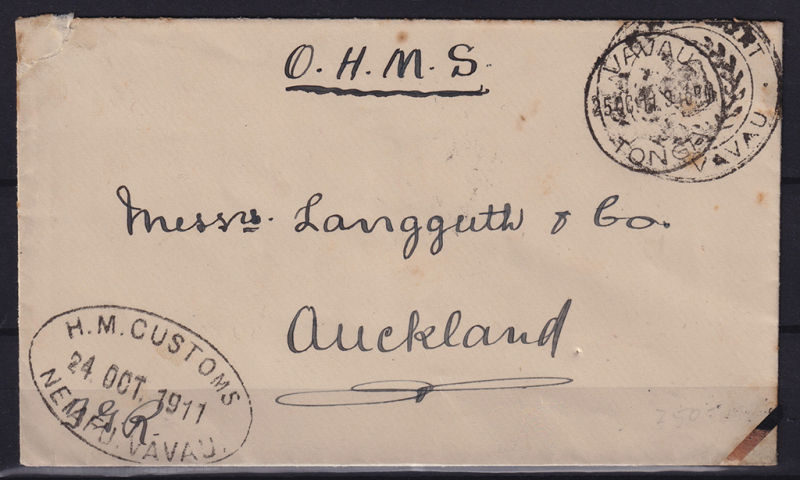 O. H. M. S.
VAVAU
25 OC 11
TONGA
VAVAU
Messrs. Langguth & Co.
Auckland
H. M. CUSTOMS
24. OCT. 1911
NEIAFU. VAVAU.